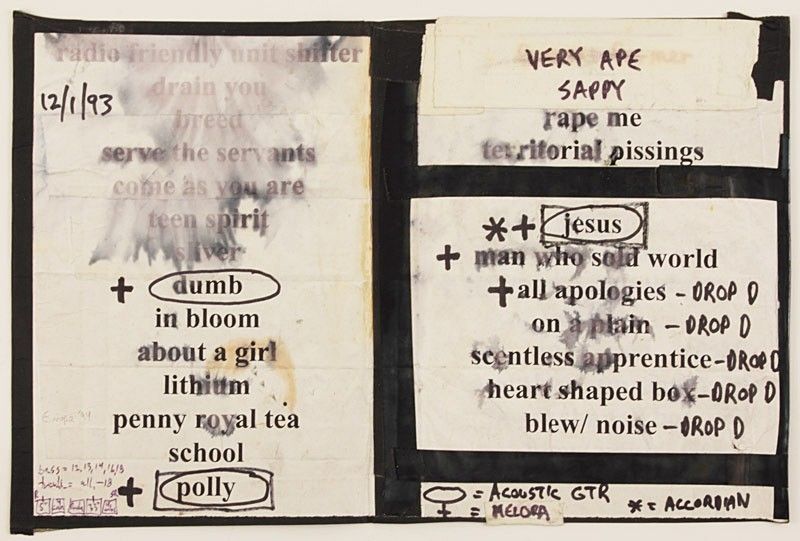 radio friendly unit shifter
drain you
12/1/93
breed
serve the servants
come as you are
teen spirit
sliver
+ dumb
in bloom
about a girl
lithium
penny royal tea
school
+ polly
VERY APE
SAPPY
rape me
territorial pissings
*+ jesus
+ man who sold world
+ all apologies - DROP D
on a plain - DROP D
scentless apprentice-DROP D
heart shaped box-DROP D
blew/ noise - DROP D
= ACOUSTIC GTR
+ = MELORA
* = ACCORDIAN